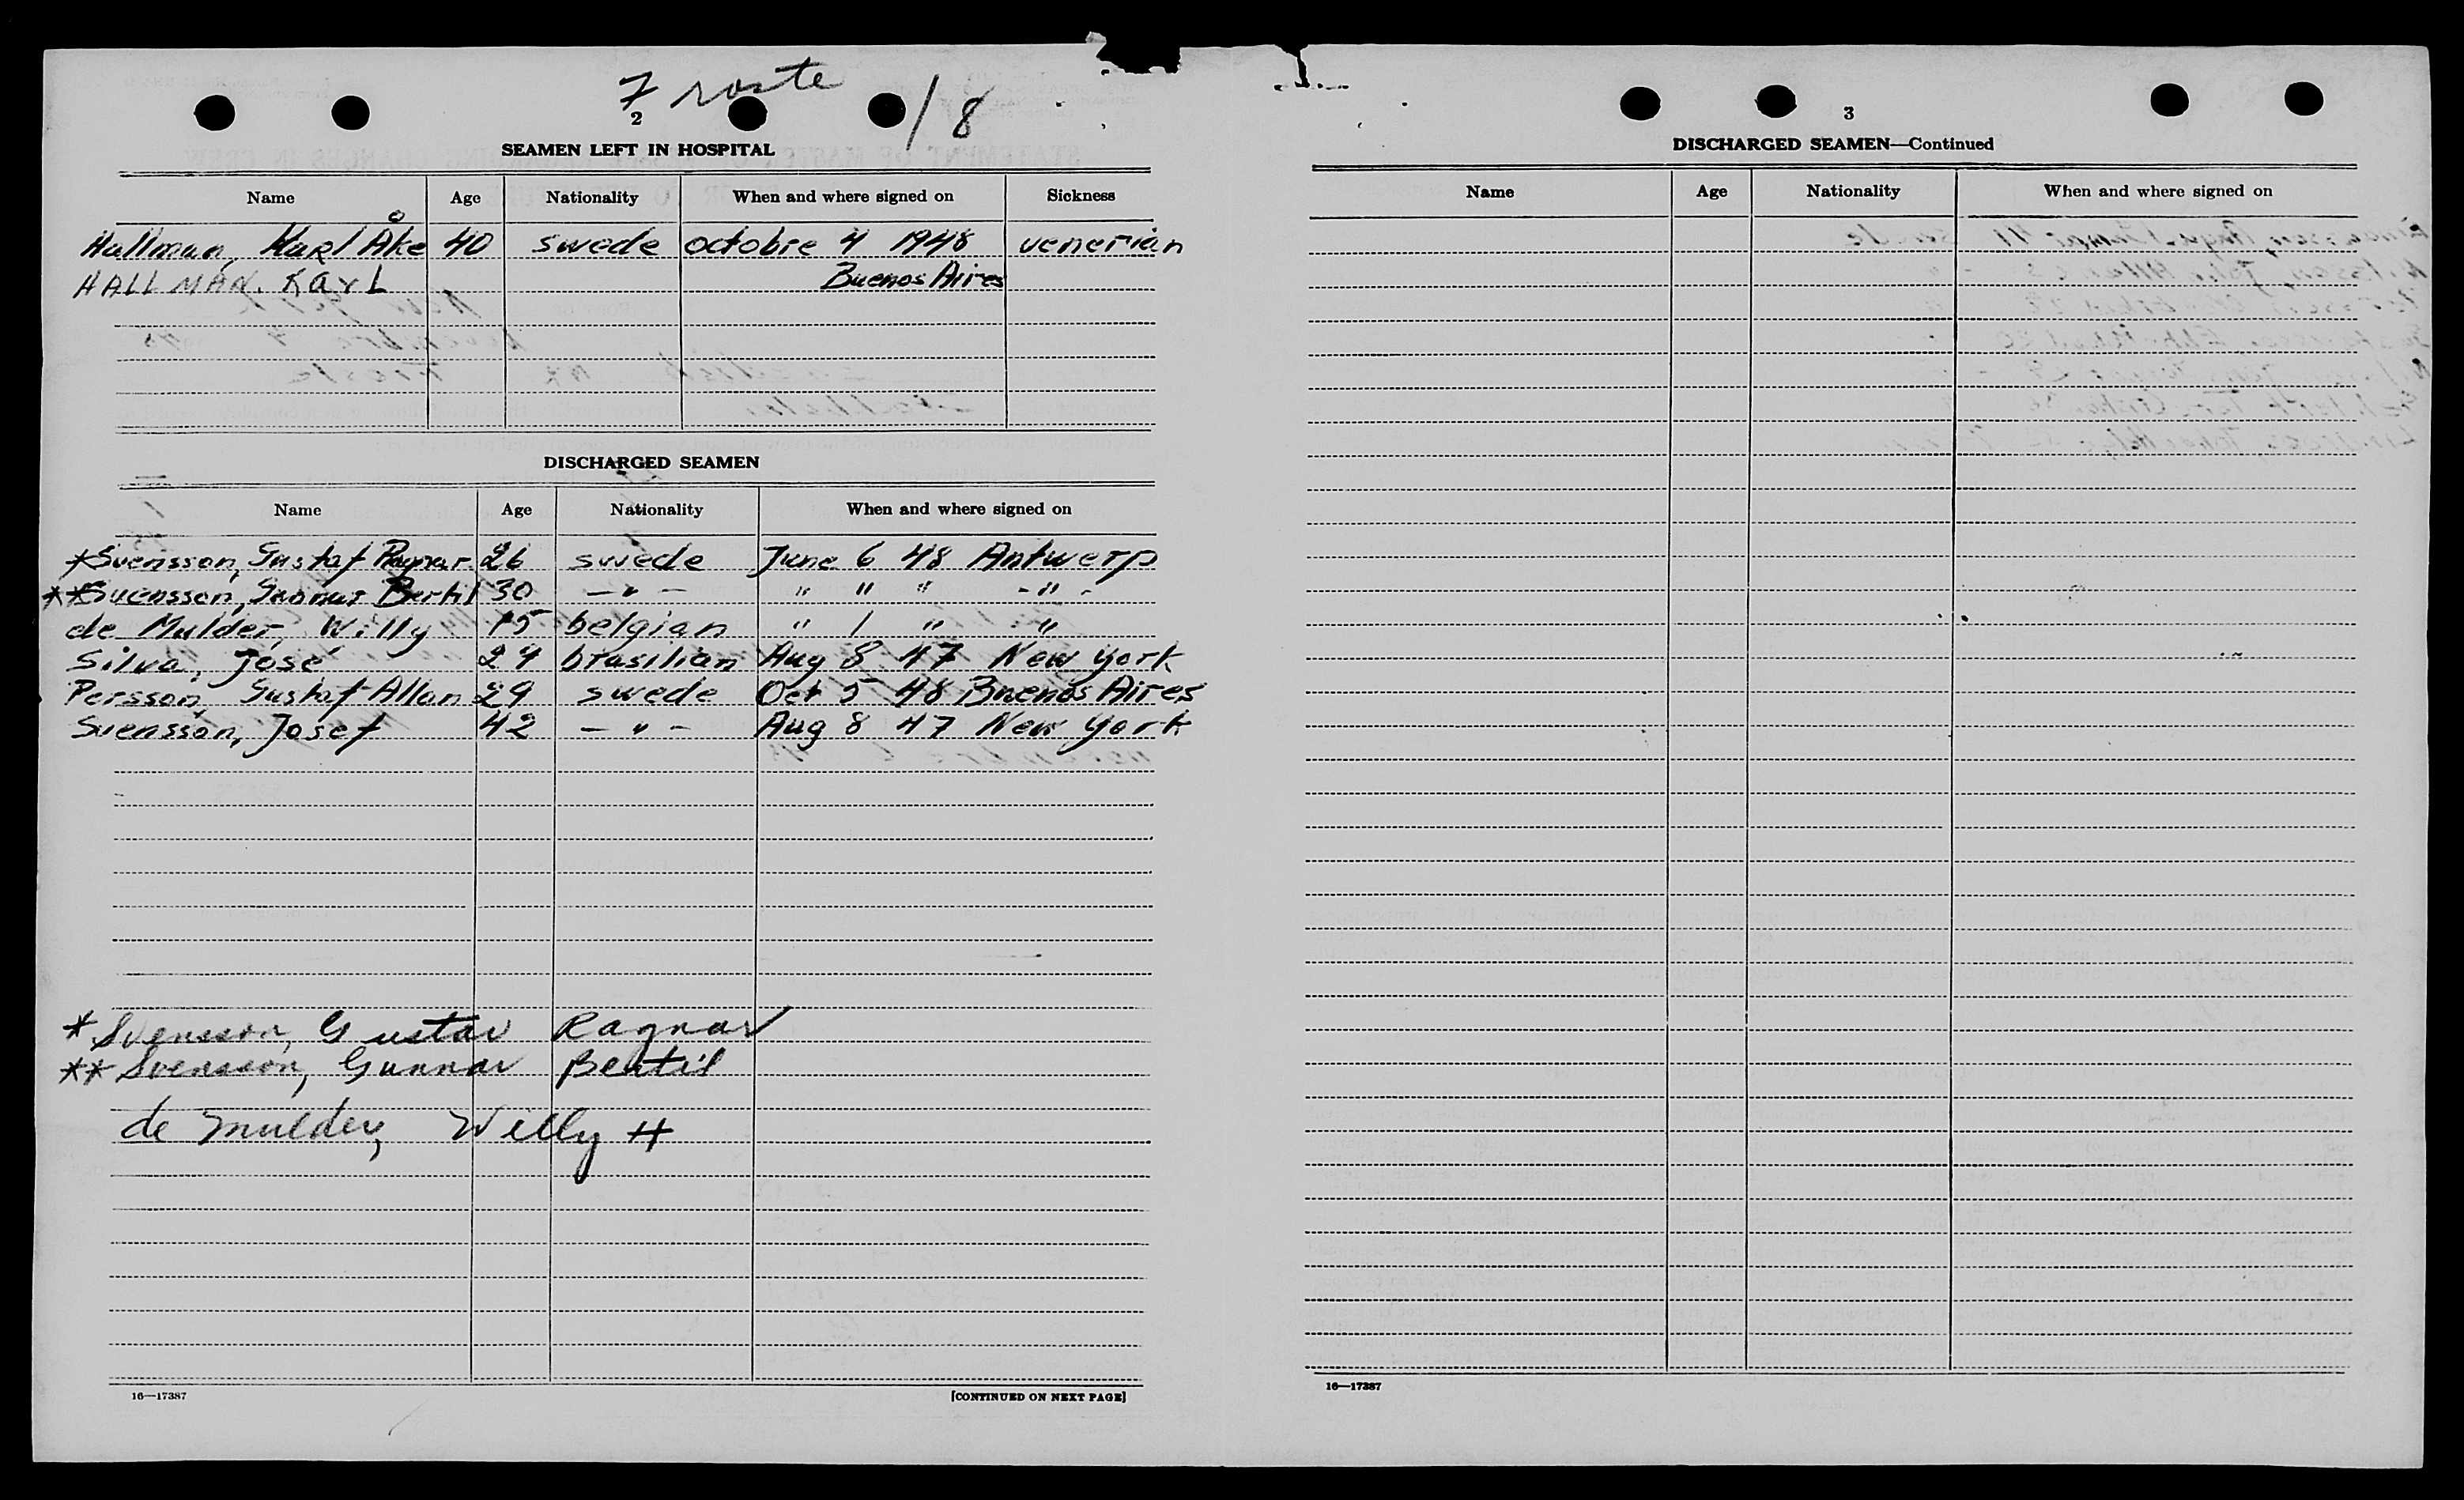 Froste
/8
2
SEAMEN LEFT IN HOSPITAL
Name Age Nationality When and where signed on Sickness
Hallman, Karl Åke 40 swede octobre 4 1948 venerian
HALLMAN. Karl Buenos Aires
DISCHARGED SEAMEN
Name Age Nationality When and where signed on
*Svensson, Gustaf Ragnar 26 swede June 6 48 Antwerp
**Svensson, Gunnar Bertil 30 — " — " " " - " -
de Mulder, Willy 15 belgian " 1 " "
Silva, José 24 brasilian Aug 8 47 New York
Persson, Gustaf Allan 29 swede Oct 5 48 Buenos Aires
Svensson, Josef 42 — " — Aug 8 47 New York
* Svensson, Gustav Ragnar
** Svensson, Gunnar Bertil
de Mulder, Willy H
16—17387 [CONTINUED ON NEXT PAGE]
3
DISCHARGED SEAMEN—Continued
Name Age Nationality When and where signed on
16—17387